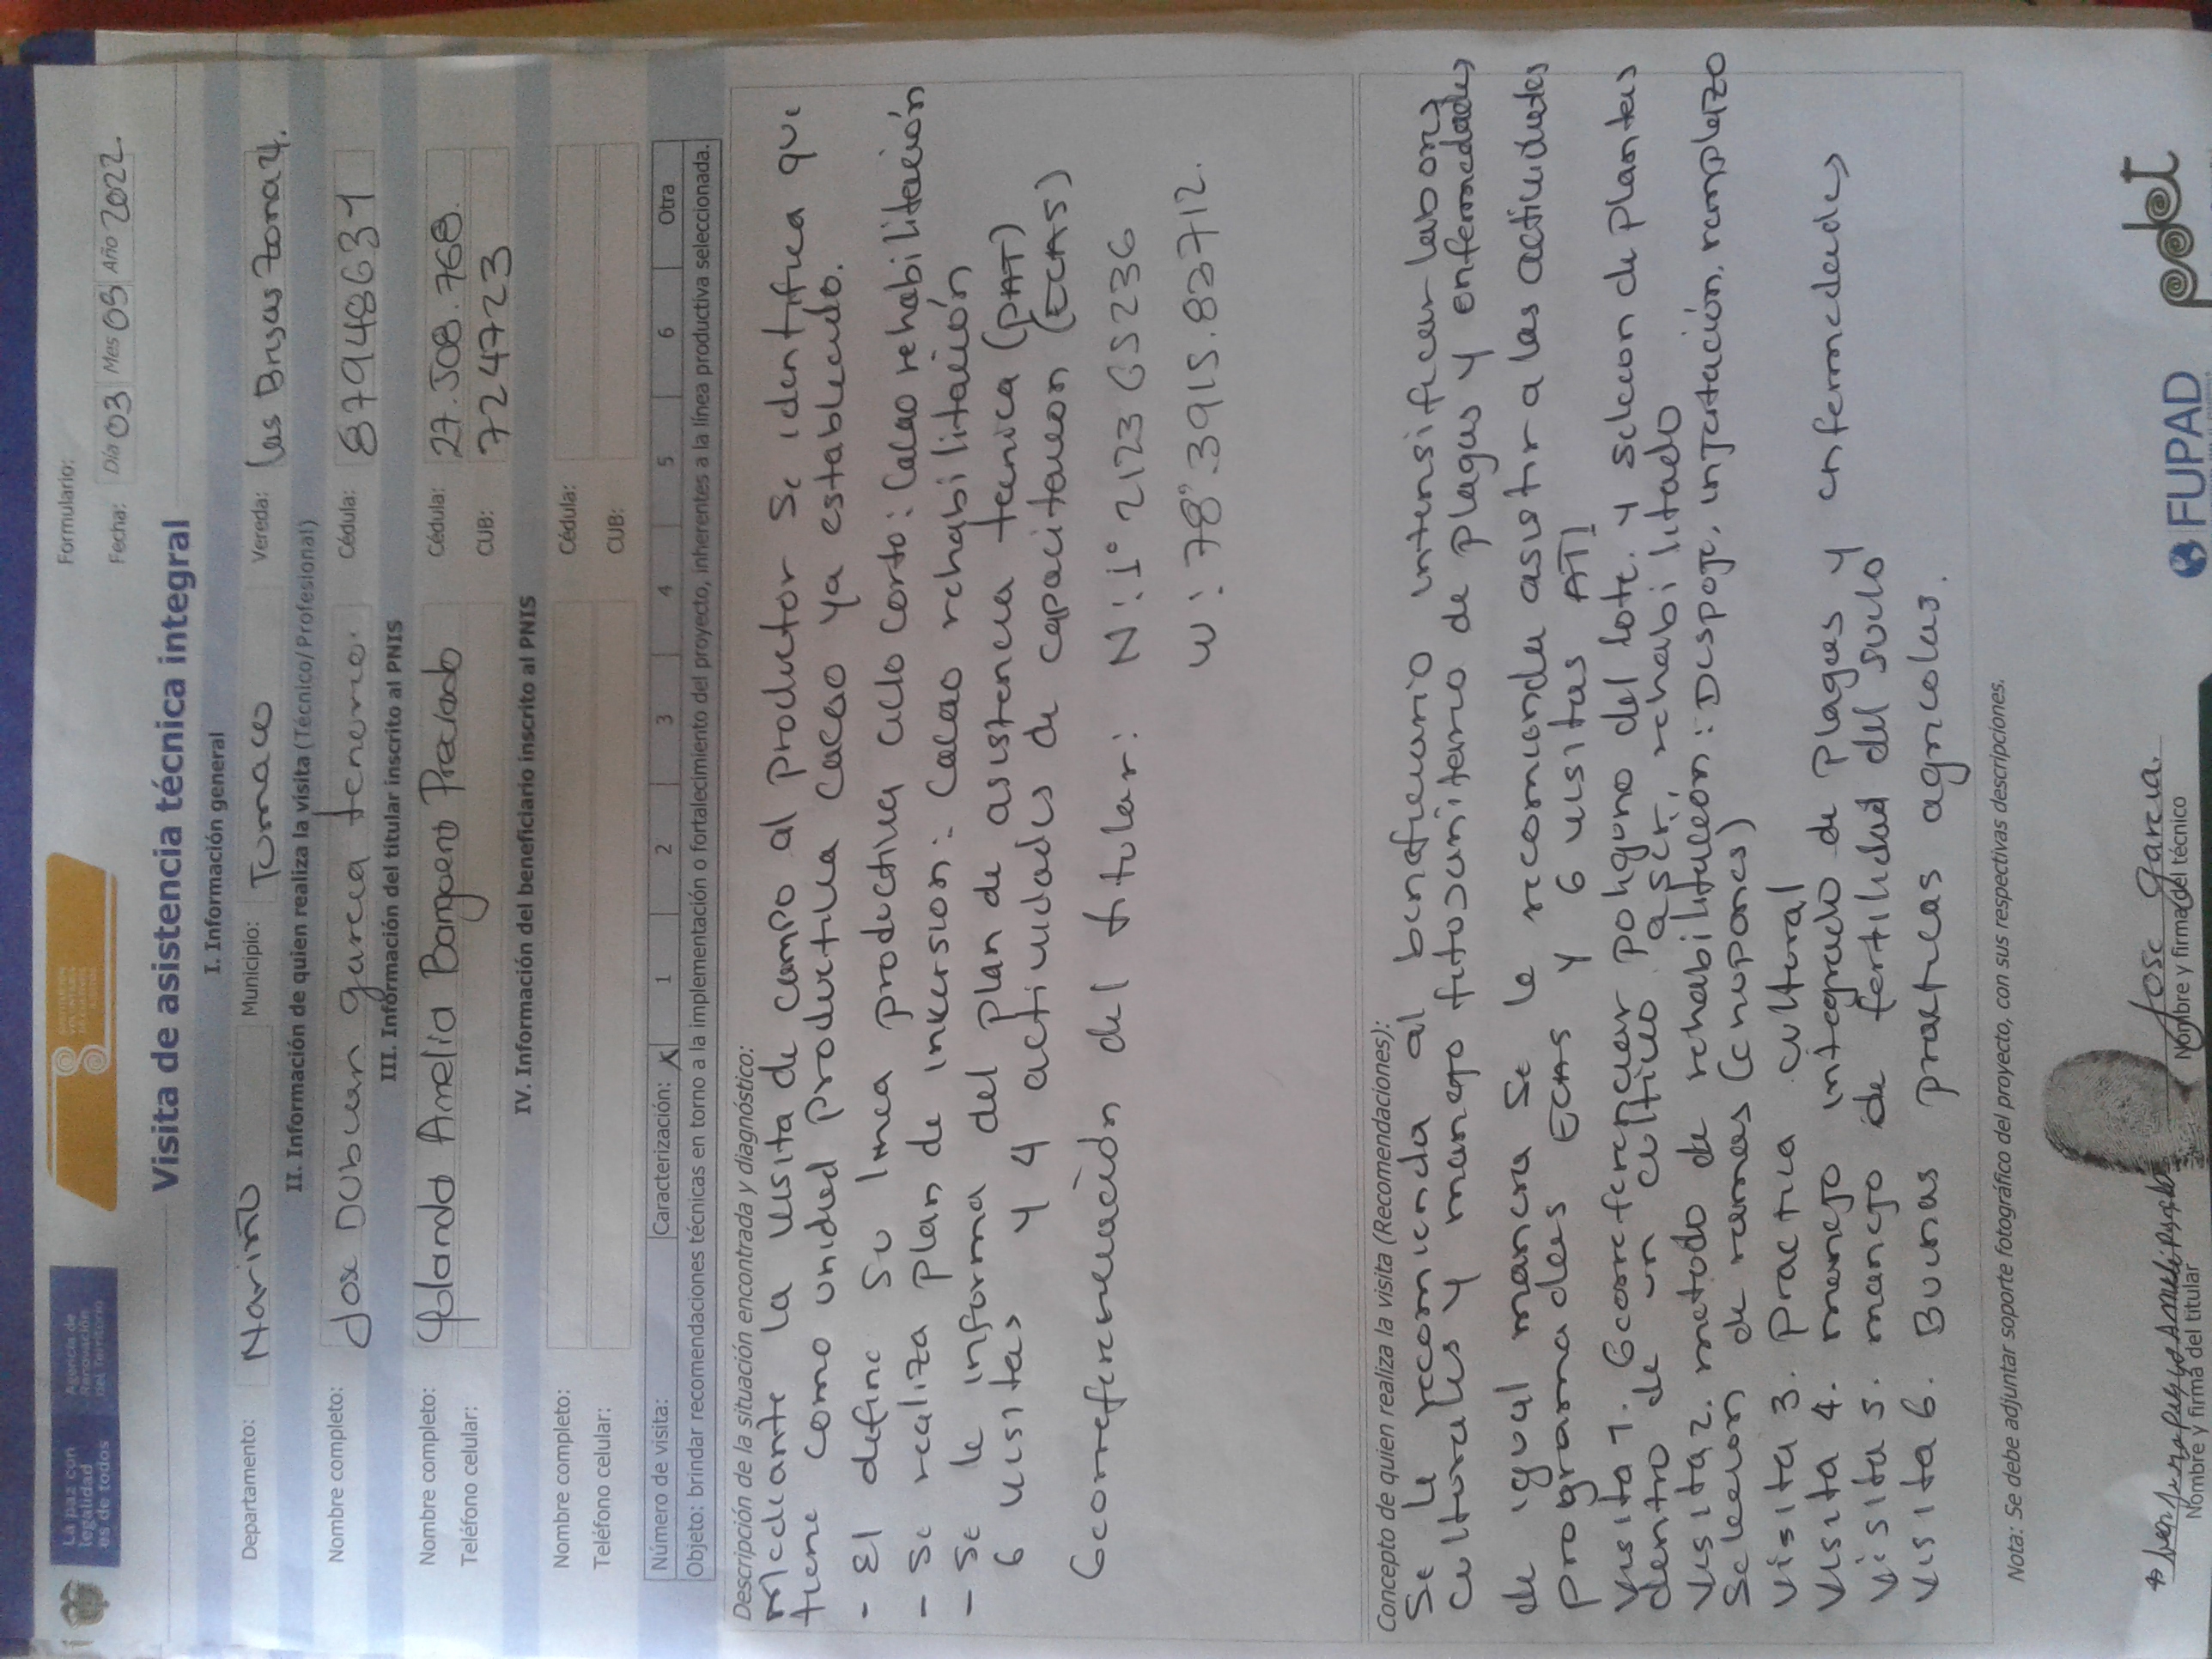 La paz con
legalidad
es de todos
Agencia de
Renovación
del Territorio
Formulario:
Fecha: Día 03 Mes 05 Año 2022
Visita de asistencia técnica integral
I. Información general
Departamento: Nariño Municipio: Tumaco Vereda: las Brisas zona 4.
II. Información de quien realiza la visita (Técnico/Profesional)
Nombre completo: Jose Dubuan garcia tenorio. Cédula: 87948631
III. Información del titular inscrito al PNIS
Nombre completo: Yolanda Amelia Banguera Preciado Cédula: 27.508.768.
Teléfono celular: CUB: 7244723
IV. Información del beneficiario inscrito al PNIS
Nombre completo: Cédula:
Teléfono celular: CUB:
Número de visita: Caracterización: X 1 2 3 4 5 6 Otra
Objeto: brindar recomendaciones técnicas en torno a la implementación o fortalecimiento del proyecto, inherentes a la línea productiva seleccionada.
Descripción de la situación encontrada y diagnóstico:
Mediante la visita de campo al productor se identifica que
tiene como unidad productiva cacao ya establecido.
- El define su linea productiva ciclo corto: Cacao rehabilitación
- se realiza plan de inversion: Cacao rehabilitación
- se le informa del plan de asistencia tecnica (PAT)
6 visitas y 4 actividades de capacitacion (ECAS)
Georreferenciación del titular: N: 1° 2123 65236
W: 78°.3915.83712.
Concepto de quien realiza la visita (Recomendaciones):
Se le recomienda al beneficiario intensificar labores
culturales y manejo fitosanitario de plagas y enfermedades
de igual manera se le recomienda asistir a las actividades
programadas ECAS y 6 visitas ATI
Visita 1. Georreferenciar poligono del lote. y seleccion de plantas
dentro de un cultivo a ser, rehabilitado
Visita 2. metodo de rehabilitacion: Despoje, injertación, remplazo
Seleccion de ramas (chupones)
Visita 3. Practica cultural
Visita 4. manejo integrado de Plagas y enfermedades
Visita 5. manejo de fertilidad del suelo
Visita 6. Buenas practicas agricolas.
Nota: Se debe adjuntar soporte fotográfico del proyecto, con sus respectivas descripciones.
Jose Garcia.
Nombre y firma del titular Nombre y firma del técnico
FUPAD pdet